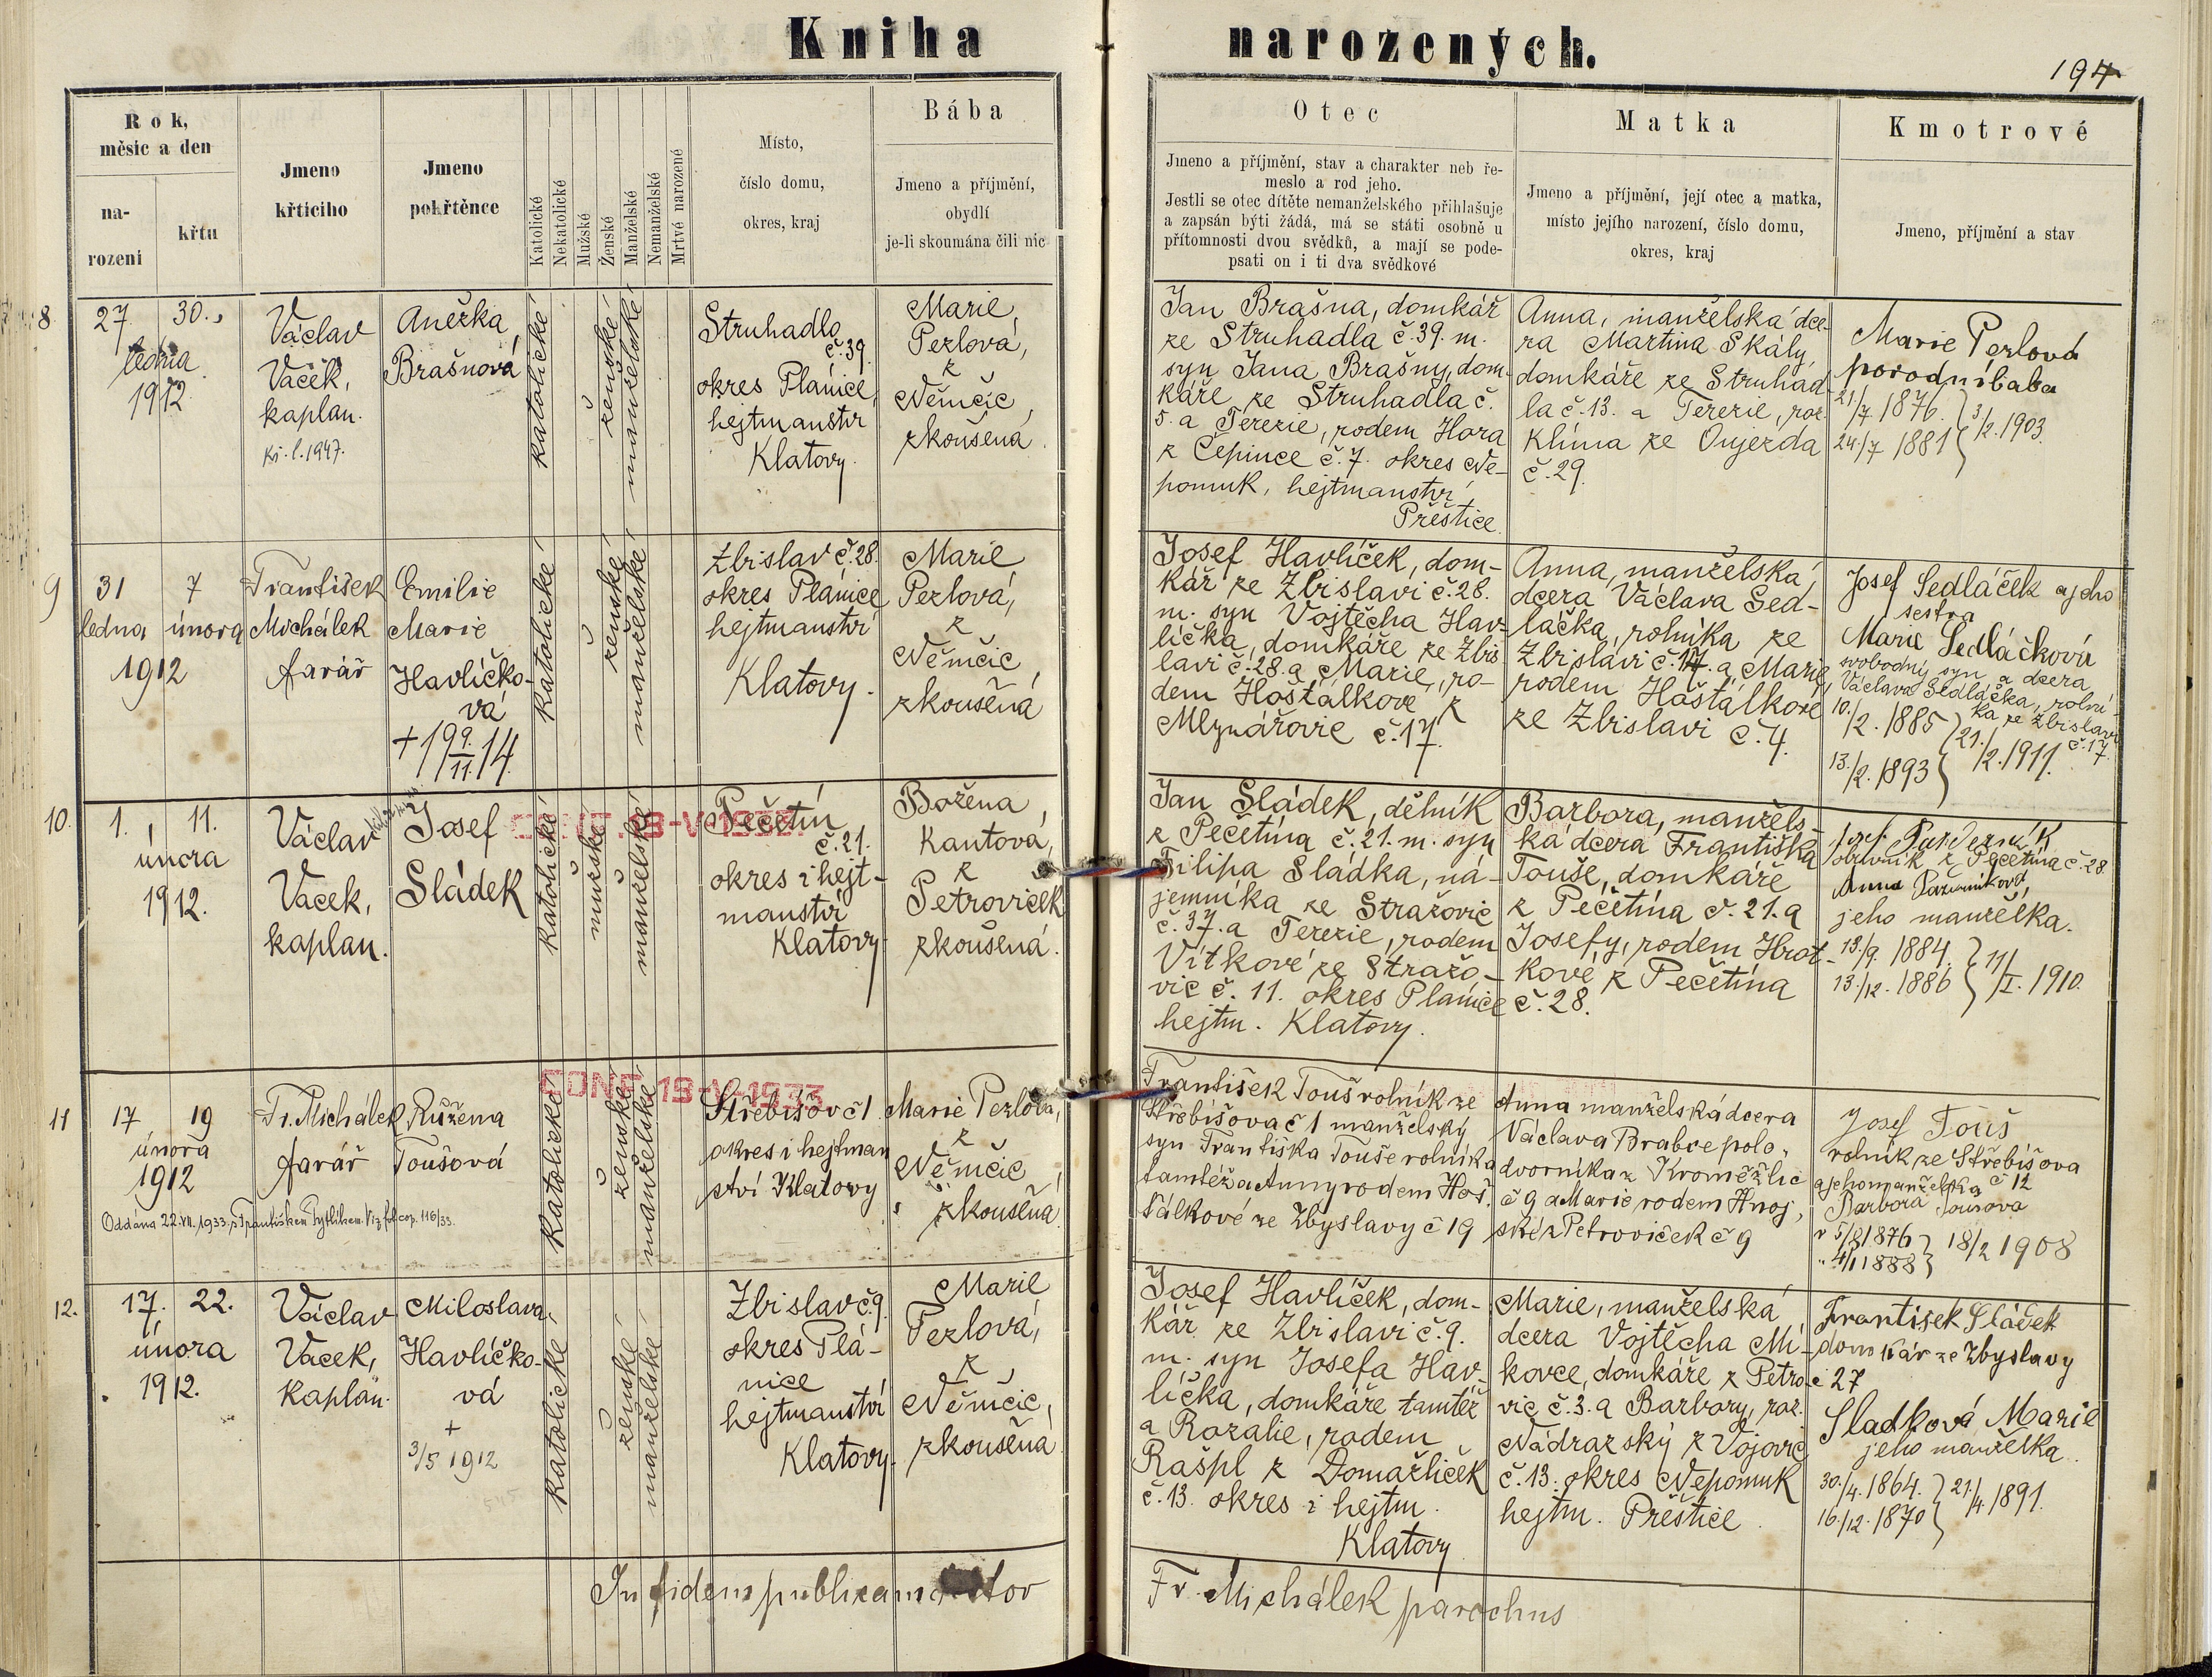 Kniha narozených.
194
Rok, měsíc a den
narození
křtu
Jmeno křticího
Jmeno pokřtěnce
Katolické
Nekatolické
Mužské
Ženské
Manželské
Nemanželské
Mrtvě narozené
Místo,
číslo domu,
okres, kraj
Bába
Jmeno a příjmění,
obydlí
je-li skoumána čili nic
Otec
Jmeno a příjmění, stav a charakter neb ře-
meslo a rod jeho.
Jestli se otec dítěte nemanželského přihlašuje
a zapsán býti žádá, má se státi osobně u
přítomnosti dvou svědků, a mají se pode-
psati on i ti dva svědkové
Matka
Jmeno a příjmění, její otec a matka,
místo jejího narození, číslo domu,
okres, kraj
Kmotrové
Jmeno, příjmění a stav
8
27. 30.
ledna
1912
Václav
Vacek,
kaplan.
Kř. l. 1947.
Anežka
Brašnová
katolické
ženské
manželské
Struhadlo
č. 39.
okres Plánice
hejtmanství
Klatovy.
Marie
Pezlová,
z
Němčic
zkoušená.
Jan Brašna, domkář
ze Struhadla č. 39. m.
syn Jana Brašny, dom-
káře ze Struhadla č.
5. a Terezie, rodem Hora
z Čepince č. 7. okres Ne-
pomuk, hejtmanství
Přeštice.
Anna, manželská dce-
ra Martina Skály,
domkáře ze Struhad-
la č. 13. a Terezie, roz.
Klíma ze Oujezda
č. 29.
Marie Pezlová
porodní bába
21/7 1876. } 3/2. 1903.
24/7 1881
9
31 7
ledna února
1912
František
Michálek
farář
Emilie
Marie
Havlíčko-
vá
+ 19 9./11. 14.
katolické
ženské
manželské
Zbislav č. 28.
okres Plánice
hejtmanství
Klatovy.
Marie
Pezlová,
z
Němčic
zkoušená
Josef Havlíček, dom-
kář ze Zbislavi č. 28.
m. syn Vojtěcha Hav-
líčka, domkáře ze Zbis
lavi č. 28. a Marie, ro-
dem Hošťálkove z
Mlynářovic č. 17.
Anna, manželská
dcera Václava Sed-
láčka, rolníka ze
Zbislavi č. 17. a Marie,
rodem Hošťálkové
ze Zbislavi č. 4.
Josef Sedláček a jeho
sestra
Marie Sedláčková
svobodný syn a dcera
Václava Sedláčka, rolní-
ka ze Zbislavi
č. 17.
10./2. 1885 } 21./2. 1911.
13./2. 1893
10.
1. 11.
února
1912.
Václav
Vacek,
kaplan.
Josef
Sládek
katolické
mužské
manželské
Pečetín
č. 21.
okres i hejt-
manství
Klatovy.
Božena
Kantová,
z
Petroviček
zkoušená.
Jan Sládek, dělník
z Pečetína č. 21. m. syn
Filipa Sládka, ná-
jemníka ze Stražovic
č. 37. a Terezie, rodem
Vítkové ze Stražo-
vic č. 11. okres Planice
hejtm. Klatovy.
Barbora, manžels-
ká dcera Františka
Touše, domkáře
z Pečetína č. 21. a
Josefy, rodem Hrot-
kové z Pečetína
č. 28.
z Pečetína č. 28.
Anna
jeho manželka.
13./9. 1884. } 11/I. 1910.
13./12. 1886
11
17 19
února
1912
Oddána 22.VII.1933 s Františkem Pytlíkem. Viz fol. cop. 116/33.
Fr. Michálek
farář
Růžena
Toušová
CONF 19-V-1933
Katolické
ženské
manželské
Střebišov č 1
okres i hejtman
ství Klatovy
Marie Pezlová,
z
Němčic
zkoušená
František Touš rolník ze
Střebišova č 1 manželský
syn Františka Touše rolníka
tamtéž a Anny rodem Hoš,
ťálkové ze Zbyslavy č 19
Anna manželská dcera
Václava Brabce polo,
dvorníka z Kroměžlic
č 9 a Marie rodem Hnoj,
ské z Petroviček č 9
Josef Touš
rolník ze Střebišova
č 12
a jeho manželka
Barbora Toušova
5/8 1876 } 18/2 1908
4/1 1888
12.
17. 22.
února
1912.
Václav
Vacek,
Kaplan.
Miloslava
Havlíčko-
vá
+
3/5 1912
katolické
ženské
manželské
Zbislav č. 9.
okres Plá-
nice
hejtmanství
Klatovy.
Marie
Pezlová,
z
Němčic,
zkoušená.
Josef Havlíček, dom-
kář ze Zbislavi č. 9.
m. syn Josefa Hav-
líčka, domkáře tamtéž
a Rozalie, rodem
Rašpl z Domažliček
č. 13. okres i hejtm.
Klatovy.
Marie, manželská
dcera Vojtěcha Mi-
kovce, domkáře z Petro-
vic č. 3. a Barbory, roz.
Nádrazský z Vojovic
č. 13. okres Nepomuk
hejtm. Přeštice.
František Sládek
domkár ze Zbyslavy
č 27
Sladková Marie
jeho manželka.
30./4. 1864. } 21./4. 1891.
16./12. 1870
In fidem publicam
Fr. Michálek parochus